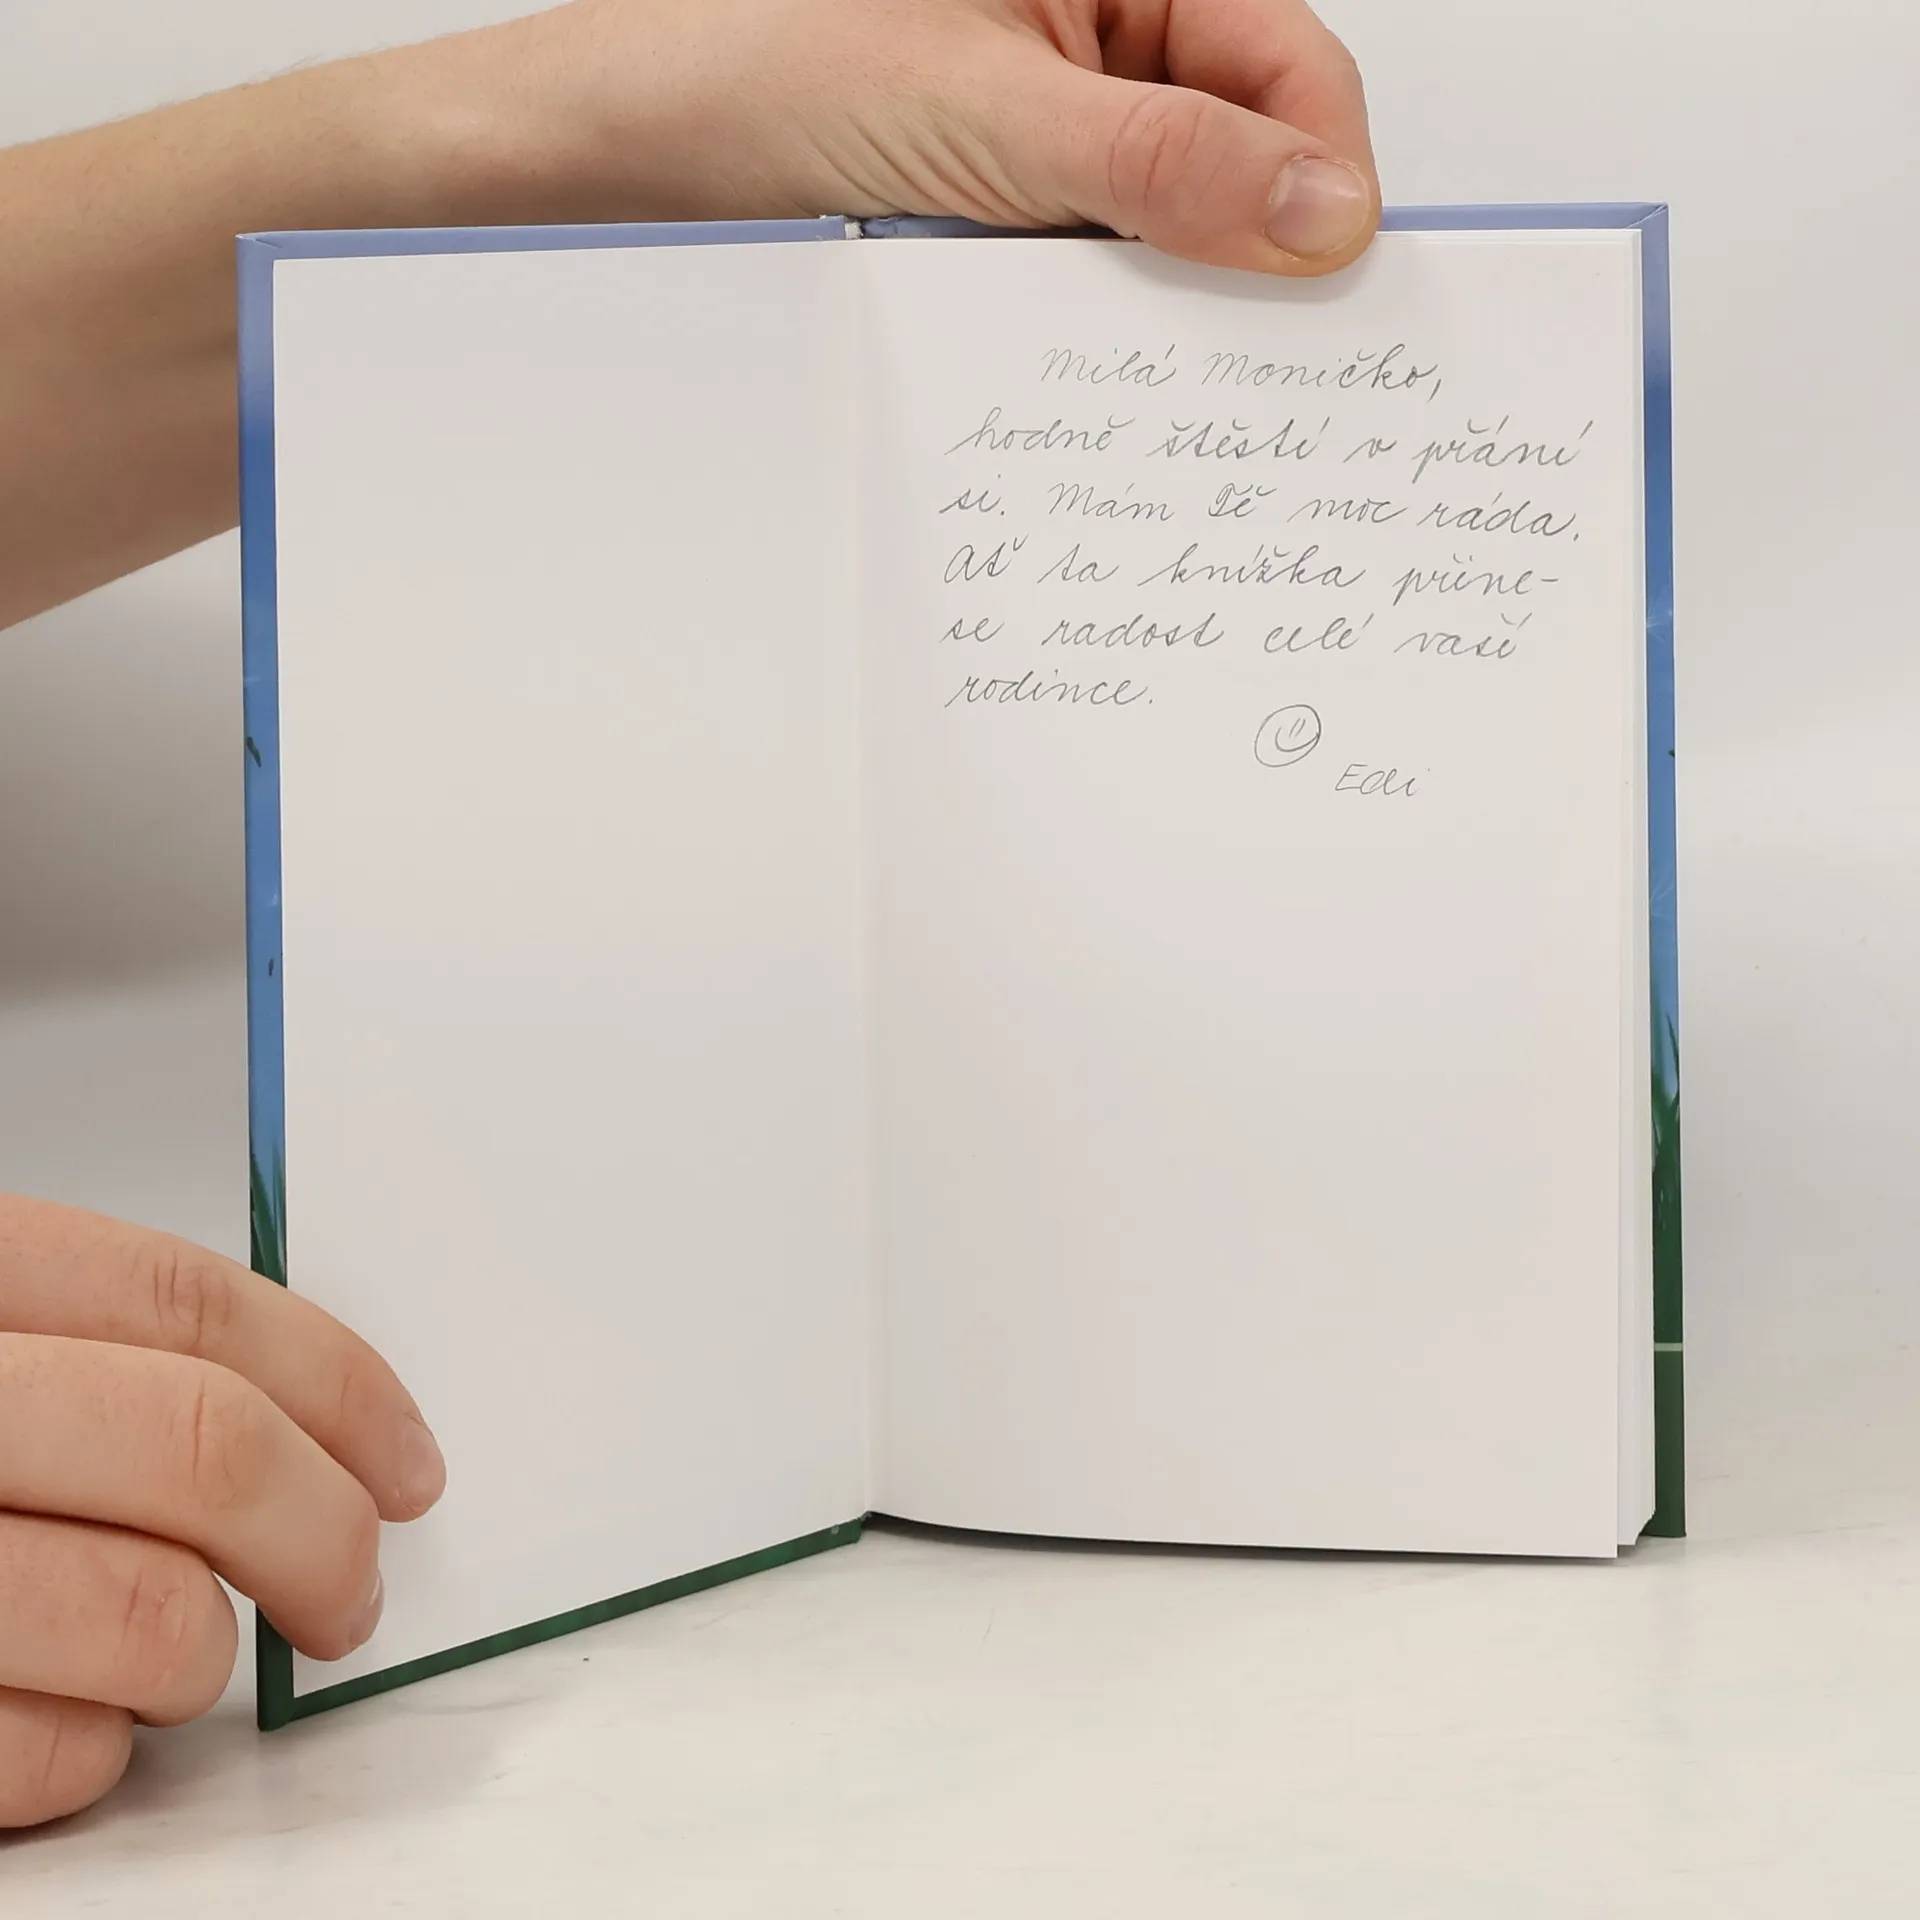 Milá Moničko,
hodně štěstí v přání
si. Mám Tě moc ráda.
Ať ta knížka přine-
se radost celé vaší
rodince.
Edi